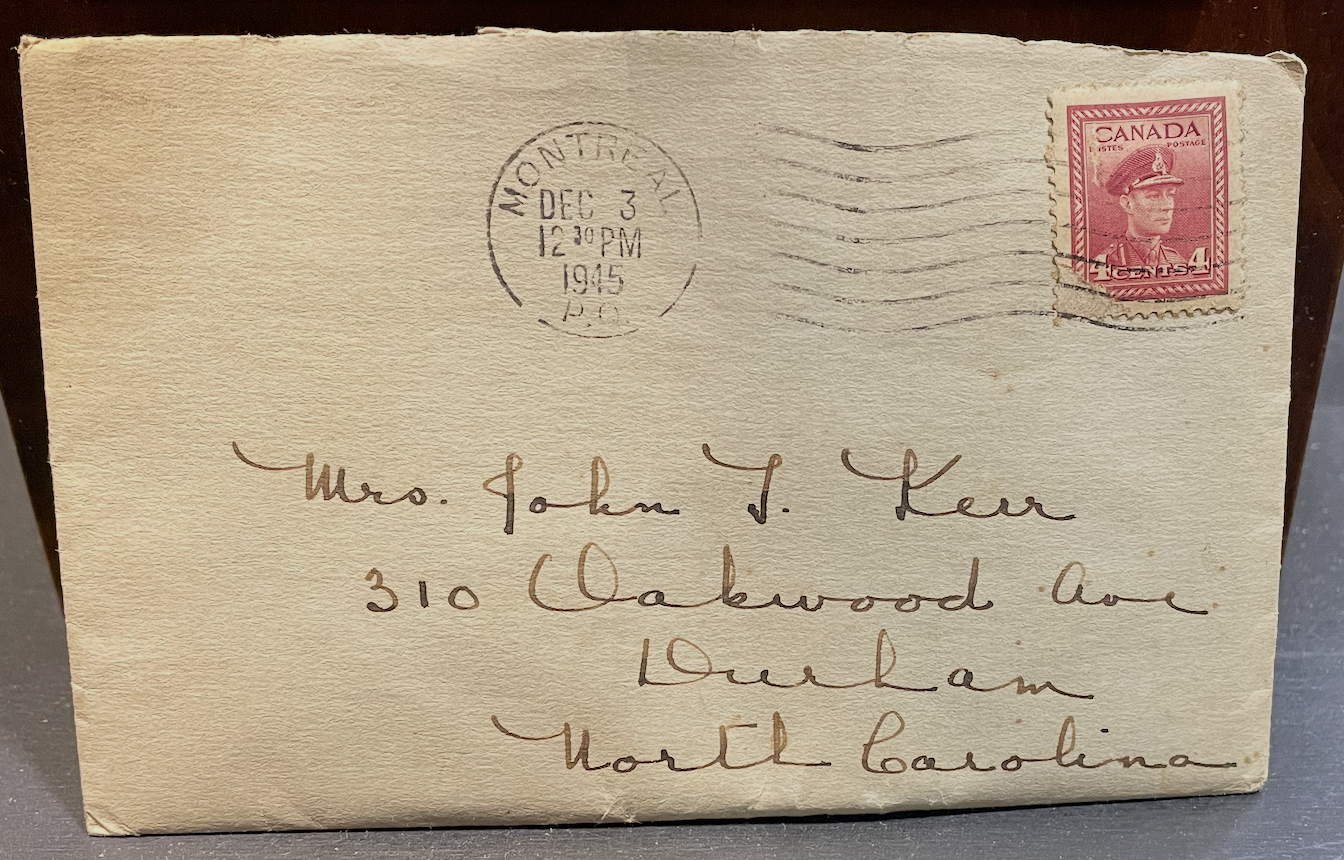 MONTREAL
DEC 3
12 30 PM
1945
P.O.
CANADA
POSTES POSTAGE
4 CENTS 4
Mrs. John T. Kerr
310 Oakwood Ave
Durham
North Carolina